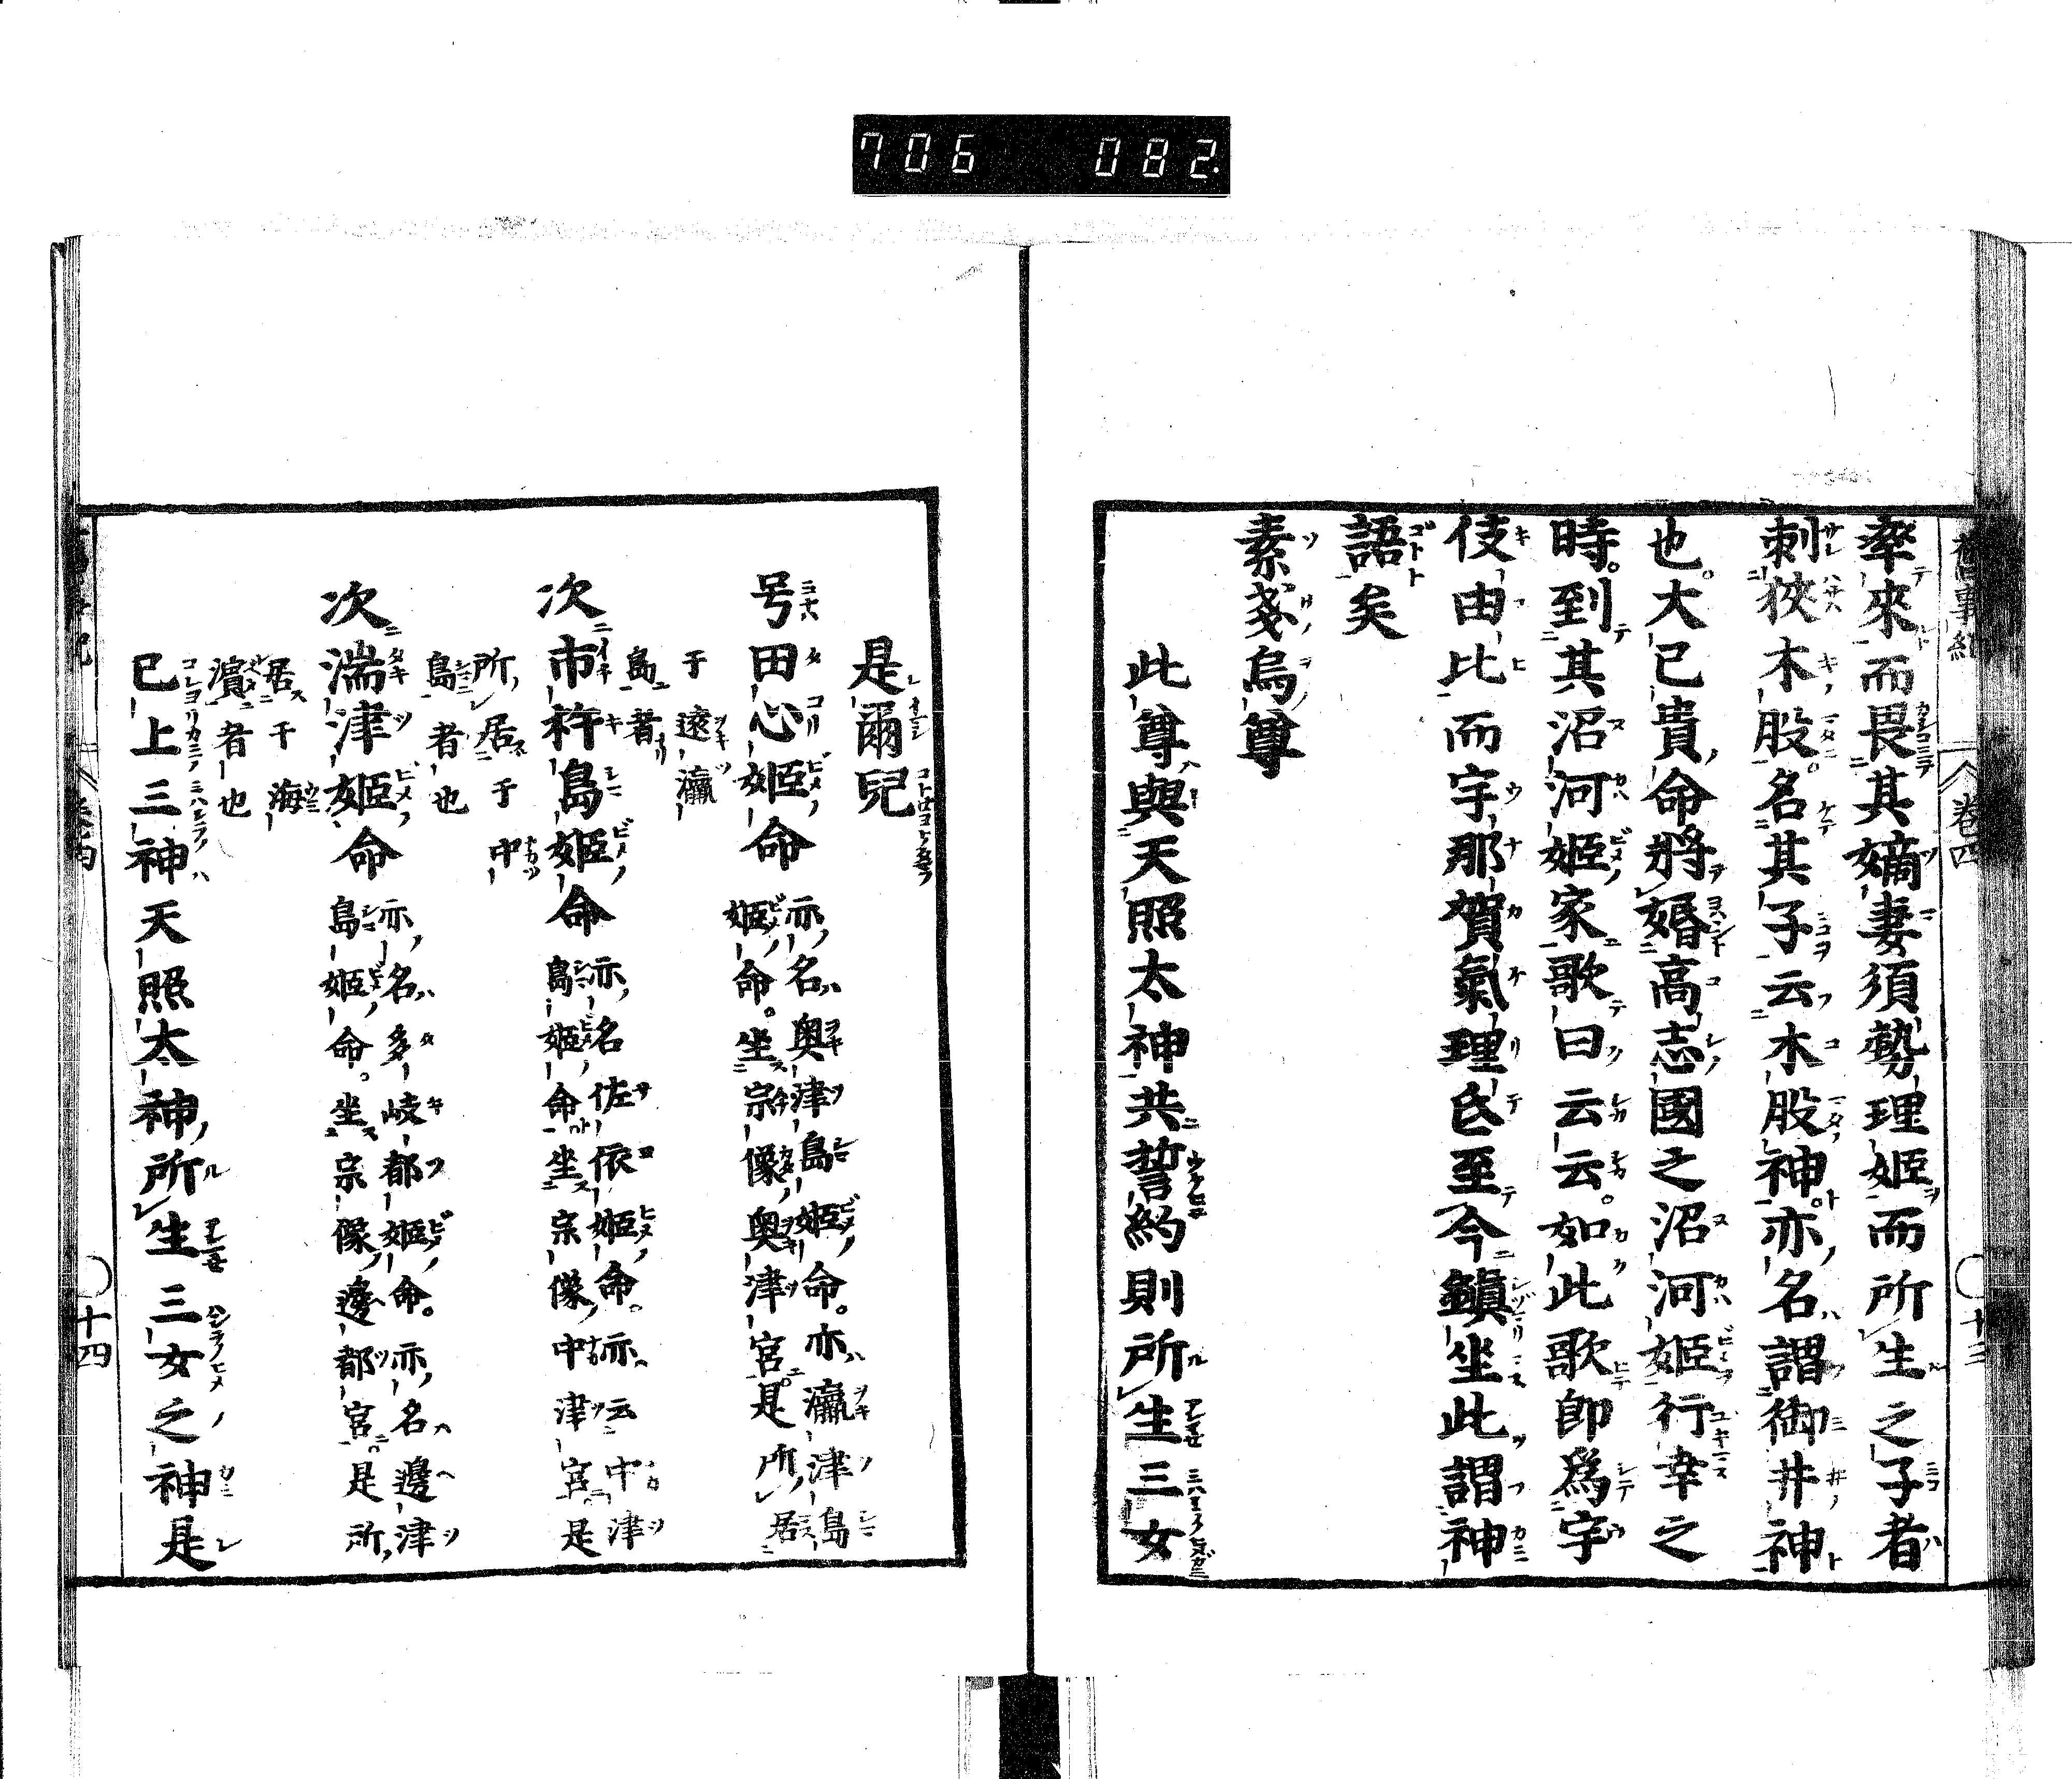 706 082
卷四
率來而畏其嫡妻須勢理姬而所生之子者
刺狹木股名其子云木股神。亦名謂御井神
也。大己貴命將婚高志國之沼河姬行幸之
時。到其沼河姬家歌曰云云。如此歌即爲宇
伎由比而宇那賀氣理氐至今鎭坐此謂神
語矣
素戔烏尊
此尊與天照太神共誓約則所生三女
是爾兒
号田心姬命
亦名奥津島姬命。亦瀛津島
姬命。坐宗像奥津宮。是所居
于遠瀛
島者
次市杵島姬命
亦名佐依姬命。亦云中津
島姬命坐宗像中津宮是
所居于中
島者也
次湍津姬命
亦名多岐都姬命。亦名邊津
島姬命。坐宗像邊都宮。是所
居于海
濵者也
已上三神天照太神所生三女之神是
十四